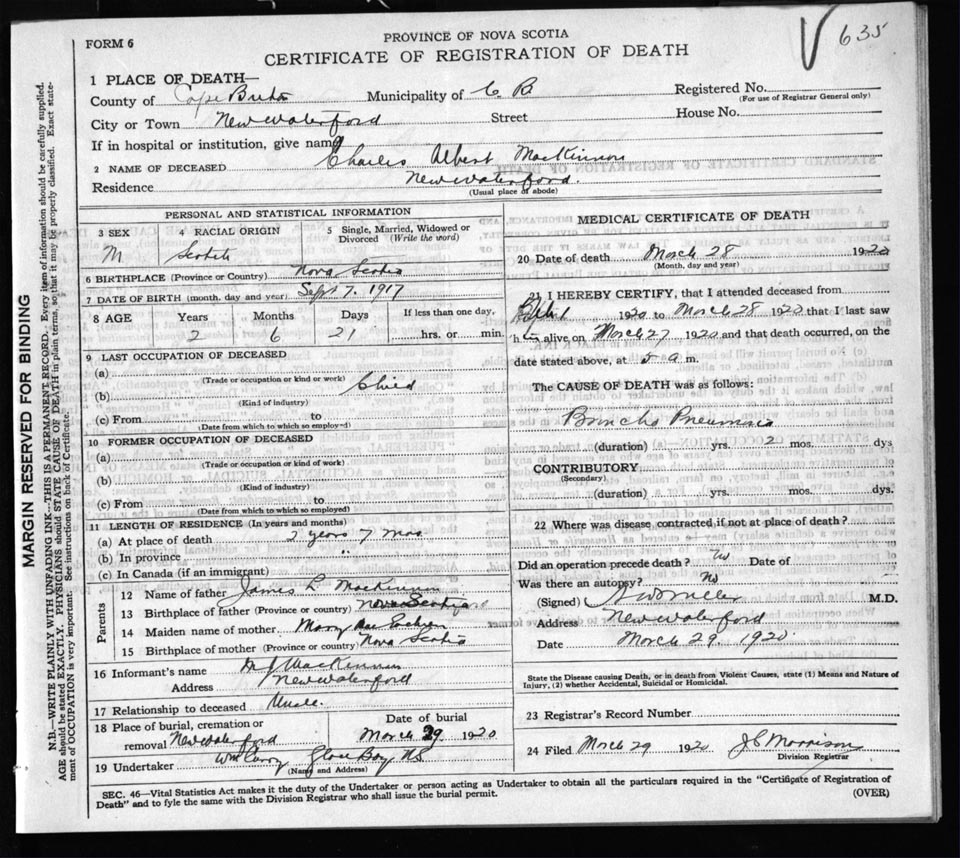 635
FORM 6
PROVINCE OF NOVA SCOTIA
CERTIFICATE OF REGISTRATION OF DEATH
1 PLACE OF DEATH—
County of Cape Breton Municipality of C B Registered No.
(For use of Registrar General only)
City or Town New Waterford Street House No.
If in hospital or institution, give name
2 NAME OF DECEASED Charles Albert MacKinnon
Residence New Waterford.
(Usual place of abode)
PERSONAL AND STATISTICAL INFORMATION
3 SEX 4 RACIAL ORIGIN 5 Single, Married, Widowed or Divorced (Write the word)
M Scotch
6 BIRTHPLACE (Province or Country) Nova Scotia
7 DATE OF BIRTH (month, day and year) Sept 7. 1917
8 AGE Years Months Days If less than one day,
2 6 21 hrs. or min.
9 LAST OCCUPATION OF DECEASED
(a)
(Trade or occupation or kind or work)
(b) Child
(Kind of industry)
(c) From to
(Date from which to which so employed)
10 FORMER OCCUPATION OF DECEASED
(a)
(Trade or occupation or kind of work)
(b)
(Kind of industry)
(c) From to
(Date from which to which so employed)
11 LENGTH OF RESIDENCE (In years and months)
(a) At place of death 2 years 7 mos.
(b) In province "
(c) In Canada (if an immigrant)
Parents
12 Name of father James L MacKinnon
13 Birthplace of father (Province or country) Nova Scotia
14 Maiden name of mother Mary Mac Eachern
15 Birthplace of mother (Province or country) Nova Scotia
16 Informant's name MacKinnon
Address New Waterford
17 Relationship to deceased Uncle.
18 Place of burial, cremation or removal New Waterford
Date of burial March 29 1920
19 Undertaker Wm Curry Glace Bay NS
(Name and Address)
MEDICAL CERTIFICATE OF DEATH
20 Date of death March 28 1920
(Month, day and year)
21 I HEREBY CERTIFY, that I attended deceased from
1920 to March 28 1920 that I last saw
him alive on March 27 1920 and that death occurred, on the
date stated above, at a m.
The CAUSE OF DEATH was as follows:
Broncho Pneumonia
(duration) yrs. 2 mos. dys
CONTRIBUTORY
(Secondary)
(duration) yrs. mos. dys.
22 Where was disease contracted if not at place of death?
Did an operation precede death? No Date of
Was there an autopsy? No
(Signed) Miller M.D.
Address New Waterford
Date March 29. 1920.
State the Disease causing Death, or in death from Violent Causes, state (1) Means and Nature of
Injury, (2) whether Accidental, Suicidal or Homicidal.
23 Registrar's Record Number
24 Filed March 29 1920 J C Morrison
Division Registrar
SEC. 46—Vital Statistics Act makes it the duty of the Undertaker or person acting as Undertaker to obtain all the particulars required in the "Certificate of Registration of
Death" and to fyle the same with the Division Registrar who shall issue the burial permit. (OVER)
MARGIN RESERVED FOR BINDING
N.B.—WRITE PLAINLY WITH UNFADING INK—THIS IS A PERMANENT RECORD. Every item of information should be carefully supplied.
AGE should be stated EXACTLY. PHYSICIANS should STATE CAUSE OF DEATH in plain terms, so that it may be properly classified. Exact state-
ment of OCCUPATION is very important. See instructions on back of Certificate.